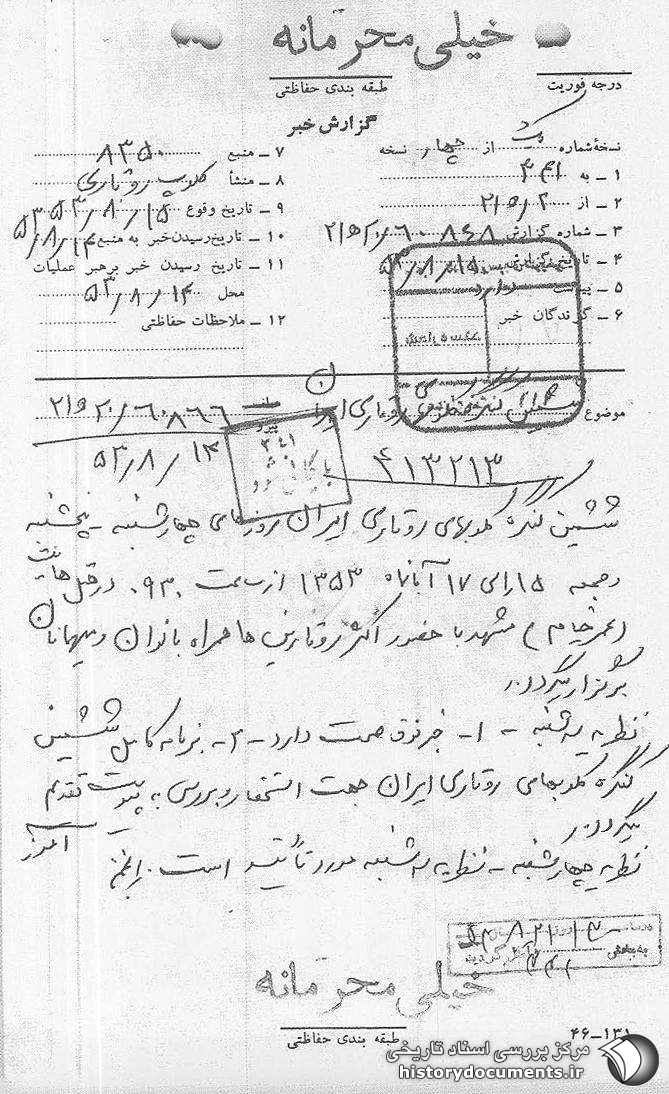 خیلی محرمانه
طبقه بندی حفاظتی
درجه فوریت
گزارش خبر
نسخهٔ شماره یک از چهار نسخه
۱ ـ به ۳۴۱
۲ ـ از ۲۱ه۲
۳ ـ شماره گزارش ۲۱ه۲۰/۶۰۸۶۸
۴ ـ تاریخ گزارش ۵۳/۸/۱۵
۵ ـ پیوست دارد
۶ ـ گیرندگان خبر
۷ ـ منبع ۸۳۵۰
۸ ـ منشأ کلوپ روتاری
۹ ـ تاریخ وقوع ۵۳/۸/۱۵
۱۰ ـ تاریخ رسیدن خبر به منبع ۵۳/۸/۱۴
۱۱ ـ تاریخ رسیدن خبر برهبر عملیات
محل ۵۳/۸/۱۴
۱۲ ـ ملاحظات حفاظتی
موضوع ششمین کنگره کلوبهای روتاری ایران
پیرو ۲۱ه۲۰/۶۰۸۶۶
۵۳/۸/۱۴
۴۱۳۲۱۳
بایگانی شود
ششمین کنگره کلوبهای روتاری ایران روزهای چهارشنبه ـ پنجشنبه
و جمعه ۱۵ الی ۱۷ آبانماه ۱۳۵۳ از ساعت ۰۹۳۰ در هتل هایت
(عمر خیام) مشهد با حضور اکثر روتارین ها همراه بانوان و میهمانان
برگزار میگردد.
نظریه سه شنبه ـ ۱ـ خبر فوق صحت دارد ـ ۲ـ برنامه کامل ششمین
کنگره کلوبهای روتاری ایران جهت استحضار و بررسی به پیوست تقدیم
میگردد.
نظریه چهارشنبه ـ نظریه سه شنبه مورد تأیید است.
خیلی محرمانه
طبقه بندی حفاظتی
۴۶-۱۳۱
مرکز بررسی اسناد تاریخی
historydocuments.ir